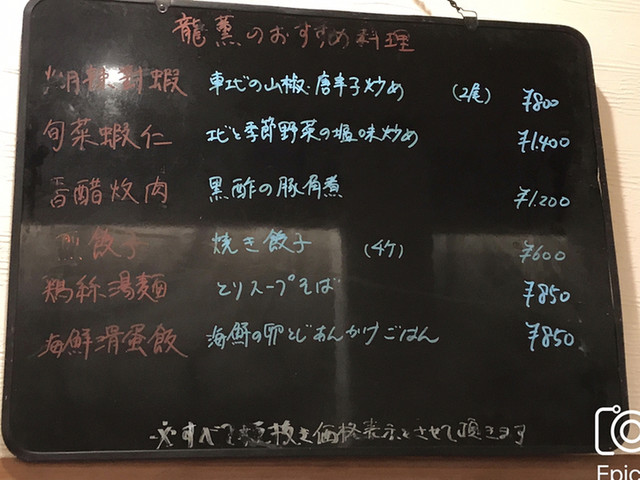 龍薫のおすすめ料理
対蝦 車エビの山椒・唐辛子炒め (2尾) ¥800
旬菜蝦仁 エビと季節野菜の塩味炒め ¥1.400
香醋炆肉 黒酢の豚角煮 ¥1.200
煎餃子 焼き餃子 (4ケ) ¥600
鶏絲湯麺 とりスープそば ¥850
海鮮滑蛋飯 海鮮の卵とじあんかけごはん ¥850
※すべて税抜き価格表示とさせて頂きます
Epic